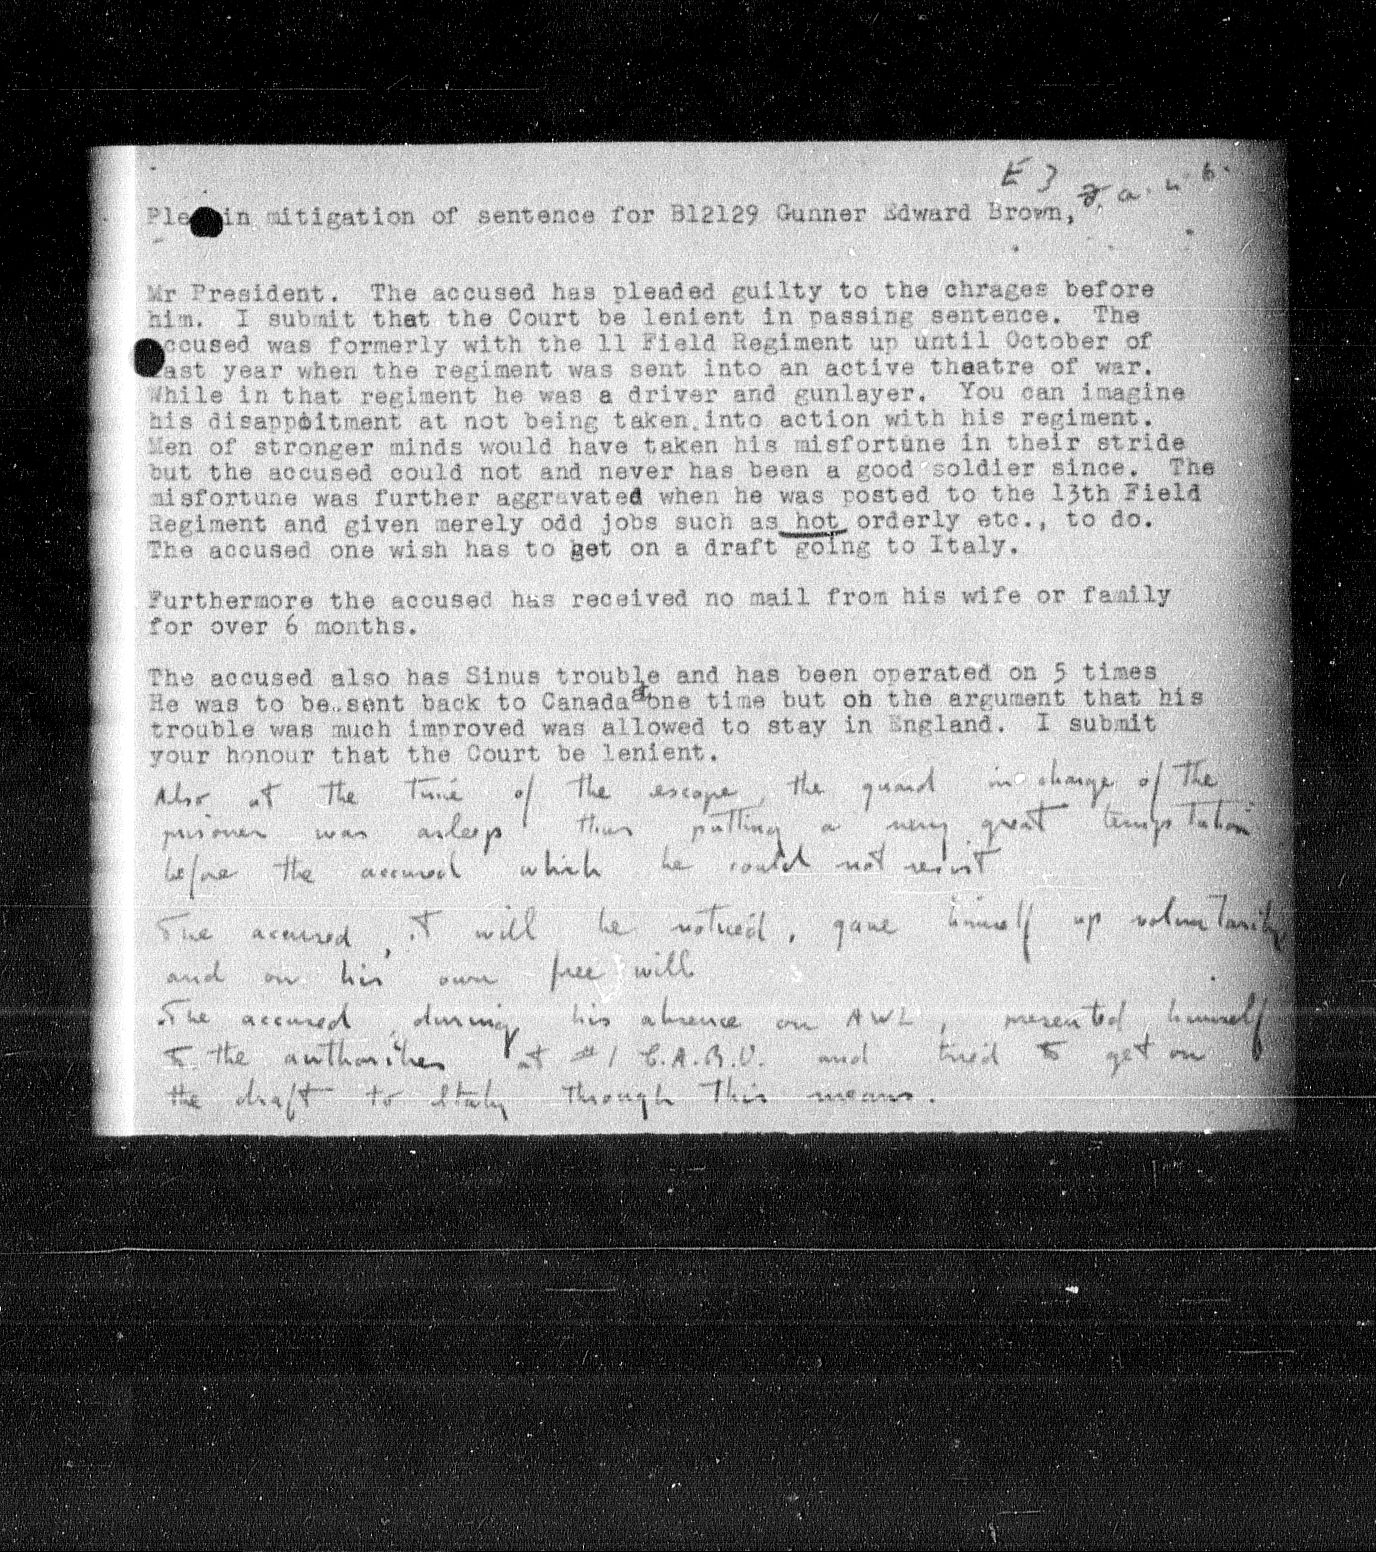 E 3 J. a. u. b.
Plea in mitigation of sentence for B12129 Gunner Edward Brown,
Mr President. The accused has pleaded guilty to the chrages before
him. I submit that the Court be lenient in passing sentence. The
accused was formerly with the 11 Field Regiment up until October of
last year when the regiment was sent into an active theatre of war.
While in that regiment he was a driver and gunlayer. You can imagine
his disappoitment at not being taken into action with his regiment.
Men of stronger minds would have taken his misfortune in their stride
but the accused could not and never has been a good soldier since. The
misfortune was further aggravated when he was posted to the 13th Field
Regiment and given merely odd jobs such as hot orderly etc., to do.
The accused one wish has to get on a draft going to Italy.
Furthermore the accused has received no mail from his wife or family
for over 6 months.
The accused also has Sinus trouble and has been operated on 5 times
He was to be sent back to Canada at one time but on the argument that his
trouble was much improved was allowed to stay in England. I submit
your honour that the Court be lenient.
Also at the time of the escape, the guard in charge of the
prisoner was asleep thus putting a very great temptation
before the accused which he could not resist
The accused, it will be noticed, gave himself up voluntarily
and on his own free will
The accused, during his absence on AWL, presented himself
to the authorities at #1 C.A.R.U. and tried to get on
the draft to Italy through this means.